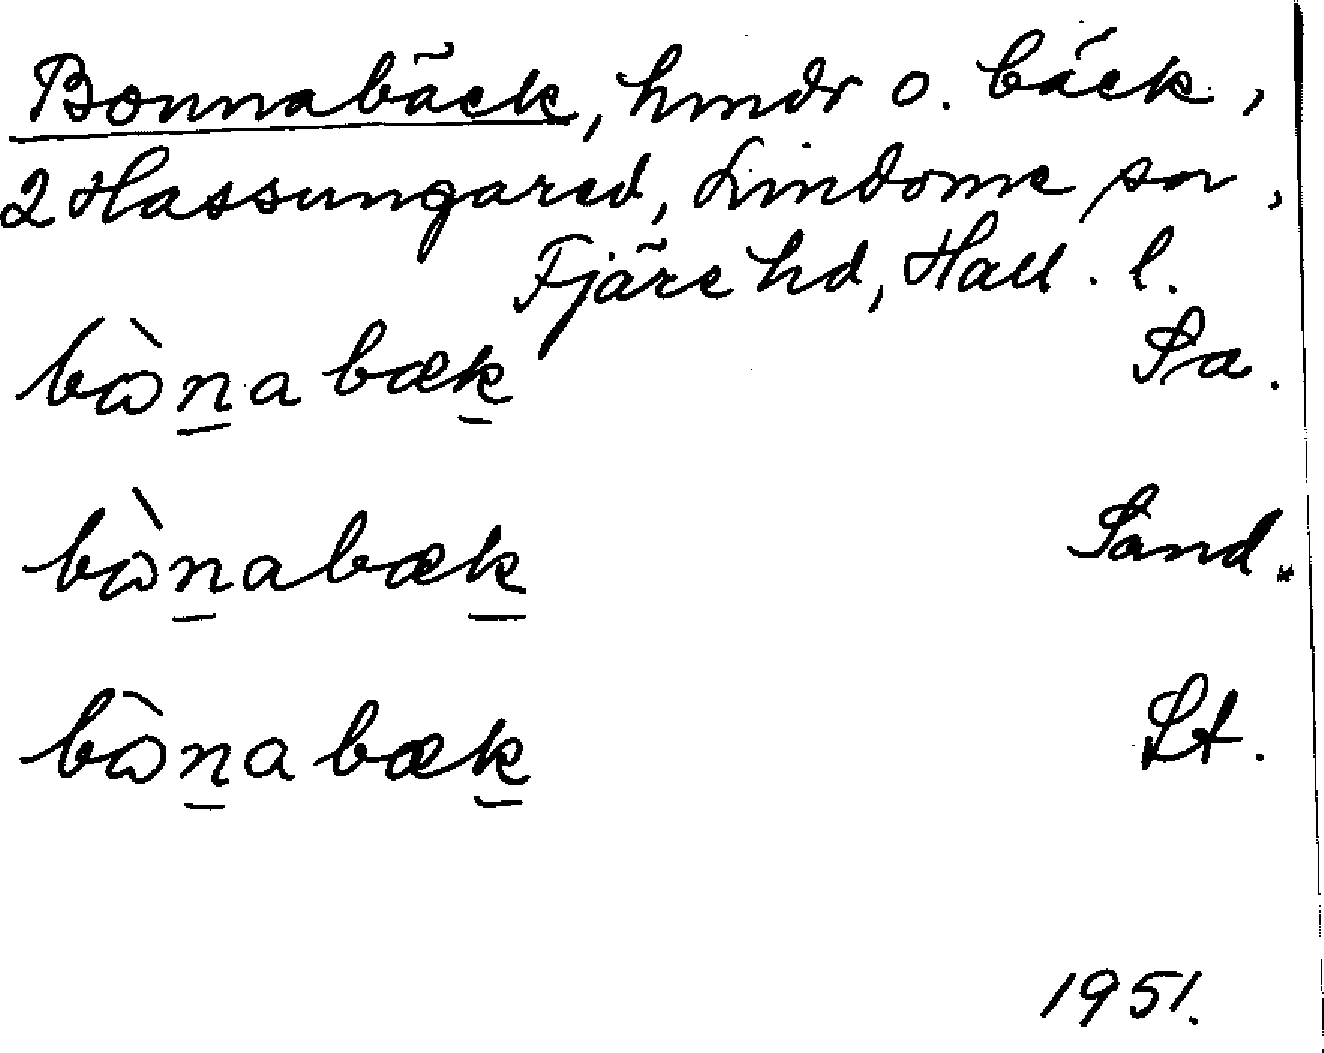 Bonnabäck, hmdr o. bäck,
2 Hassungared, Lindome sn,
Fjäre hd, Hall. l.
bὼn̲abæk̲ Sa.
bὼn̲abæk̲ Sand.
bὼn̲abæk̲ St.
1951.